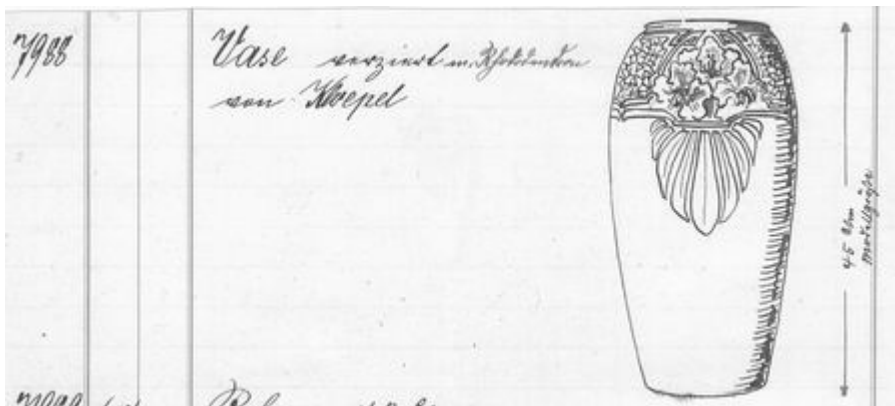 7988
Vase verziert m. Rhododendron
von Kloepel
45 Ctm
Modellgröße